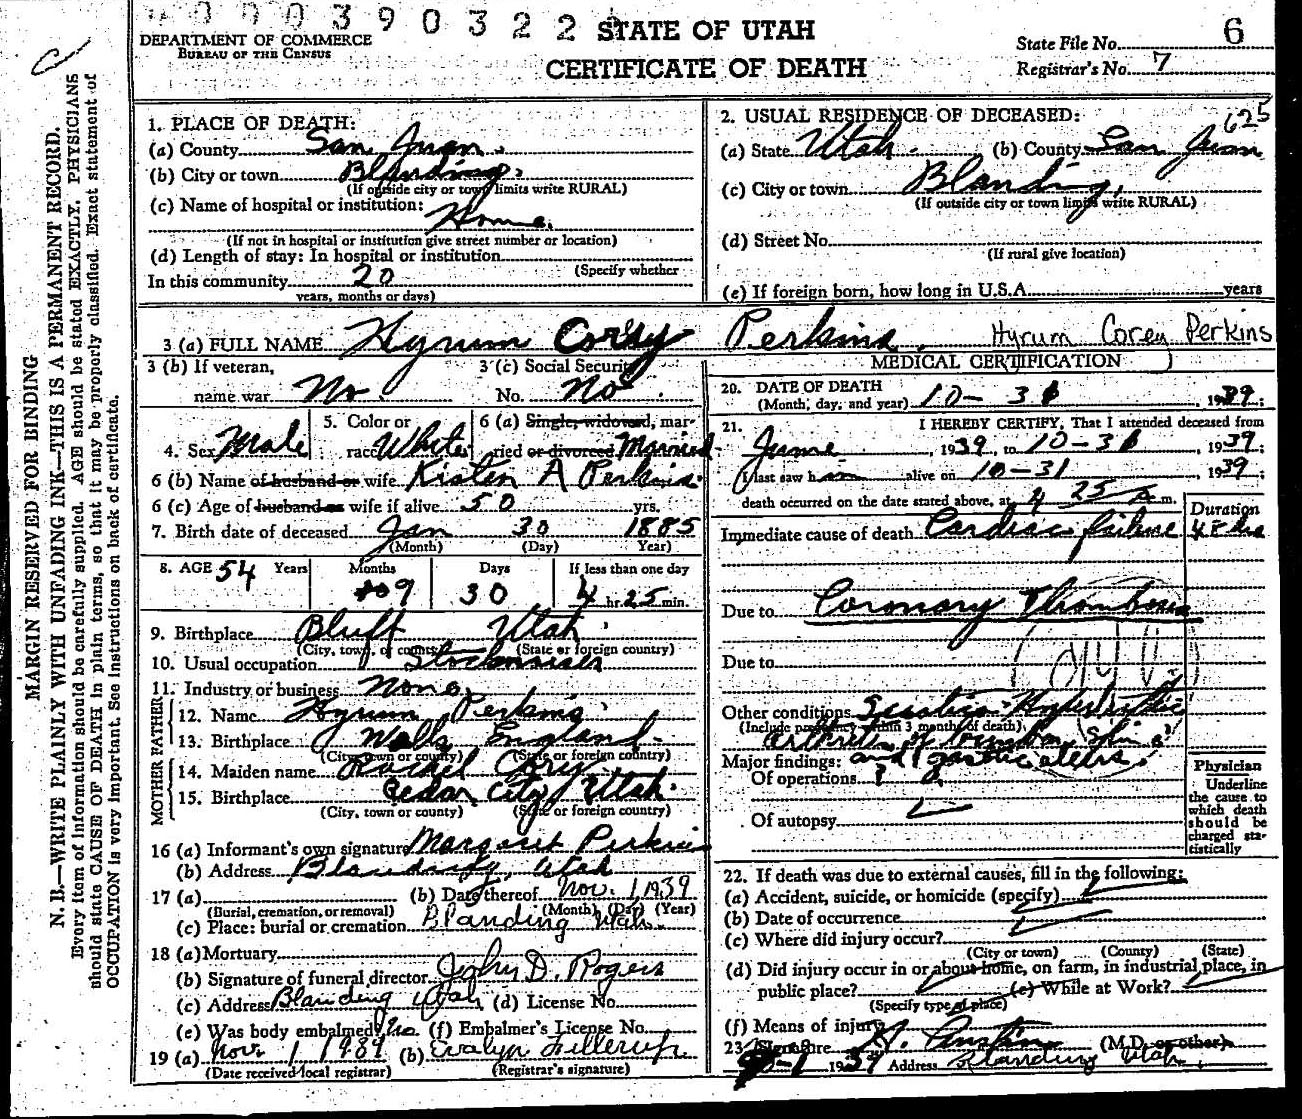 0 0 0 3 9 0 3 2 2
STATE OF UTAH
CERTIFICATE OF DEATH
DEPARTMENT OF COMMERCE
BUREAU OF THE CENSUS
State File No. 6
Registrar's No. 7
MARGIN RESERVED FOR BINDING
N. B.—WRITE PLAINLY WITH UNFADING INK—THIS IS A PERMANENT RECORD.
Every item of information should be carefully supplied. AGE should be stated EXACTLY. PHYSICIANS
should state CAUSE OF DEATH in plain terms, so that it may be properly classified. Exact statement of
OCCUPATION is very important. See instructions on back of certificate.
1. PLACE OF DEATH:
(a) County San Juan.
(b) City or town Blanding.
(If outside city or town limits write RURAL)
(c) Name of hospital or institution:
Home.
(If not in hospital or institution give street number or location)
(d) Length of stay: In hospital or institution
(Specify whether
In this community 20
years, months or days)
2. USUAL RESIDENCE OF DECEASED:
625
(a) State Utah. (b) County San Juan
(c) City or town Blanding,
(If outside city or town limits write RURAL)
(d) Street No.
(If rural give location)
(e) If foreign born, how long in U.S.A. years
3 (a) FULL NAME Hyrum Corey Perkins. Hyrum Corey Perkins
3 (b) If veteran,
name war No.
3 (c) Social Security
No. No.
4. Sex Male
5. Color or
race White
6 (a) Single, widowed, mar-
ried or divorced Married
6 (b) Name of husband or wife Kisten A Perkins.
6 (c) Age of husband or wife if alive 50 yrs.
7. Birth date of deceased Jan 30 1885
(Month) (Day) Year)
8. AGE 54 Years
Months 9
Days 30
If less than one day
4 hr. 25 min.
9. Birthplace Bluff Utah
(City, town, or county) (State or foreign country)
10. Usual occupation Stockraiser
11. Industry or business None
FATHER
12. Name Hyrum Perkins
13. Birthplace England
(City, town or county) (State or foreign country)
MOTHER
14. Maiden name Rachel Cory
15. Birthplace Cedar City Utah.
(City, town or county) (State or foreign country)
16 (a) Informant's own signature Margaret Perkins
(b) Address Blanding, Utah
17 (a) (b) Date thereof Nov. 1 1939
(Burial, cremation, or removal) (Month) (Day) (Year)
(c) Place: burial or cremation Blanding Utah.
18 (a) Mortuary
(b) Signature of funeral director John D. Rogers
(c) Address Blanding Utah (d) License No.
(e) Was body embalmed? No (f) Embalmer's License No.
19 (a) Nov. 1 1939 (b) Evalyn Fillerup
(Date received local registrar) (Registrar's signature)
MEDICAL CERTIFICATION
20. DATE OF DEATH
(Month, day, and year) 10- 31, 1939;
21. I HEREBY CERTIFY, That I attended deceased from
June, 1939, to 10-31, 1939;
I last saw him alive on 10-31 1939;
death occurred on the date stated above, at 4 25 A m.
Duration
Immediate cause of death Cardiac failure 48 hrs
Due to Coronary Thrombosis
Due to
Other conditions Sciatica
(Include pregnancy within 3 months of death)
arthritis of Spine
Major findings: and gastric ulcers.
Of operations ?
Of autopsy
Physician
Underline
the cause to
which death
should be
charged sta-
tistically
22. If death was due to external causes, fill in the following:
(a) Accident, suicide, or homicide (specify)
(b) Date of occurrence
(c) Where did injury occur?
(City or town) (County) (State)
(d) Did injury occur in or about home, on farm, in industrial place, in
public place? (e) While at Work?
(Specify type of place)
(f) Means of injury
23. Signature (M.D. or other)
1939 Address Blanding Utah.